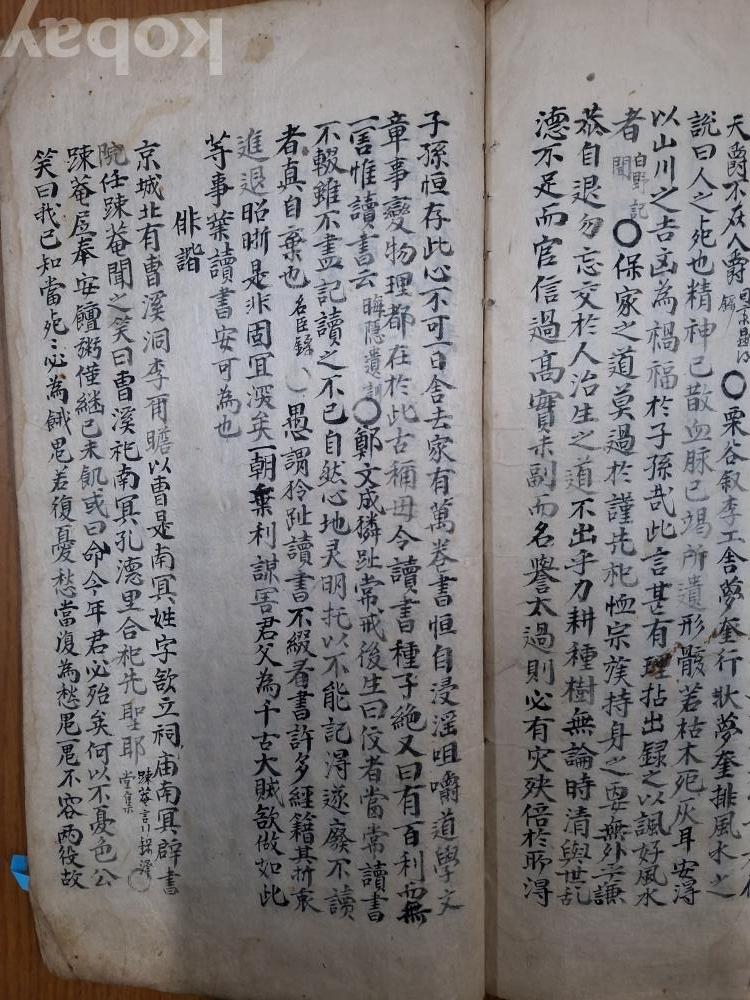 kobay
天爵不及人爵
○栗谷叙李工舍夢奎行狀夢奎排風水之
說曰人之死也精神已散血脉已竭所遺形骸若枯木死灰耳安得
以山川之吉凶為禍福於子孫哉此言甚有理拈出録之以諷好風水
者 白野記聞 ○保家之道莫過於謹先祀恤宗族持身之要無外
恭自退勿忘交於人治生之道不出乎力耕種樹無論時清與世乱
德不足而官信過高實未副而名譽太過則必有灾殃倍於所得
子孫恒存此心不可一日舍去家有萬卷書恒自浸淫咀嚼道學文
章事變物理都在於此古稱毋令讀書種子絶又曰有百利而無
一害惟讀書云 晦隱遺訓 ○鄭文成獜趾常戒後生曰仅者當常讀書
不輟雖不盡記讀之不已自然心地灵明托以不能記得遂廢不讀
者真自棄也 名臣錄 ○愚謂獜趾讀書不綴看書許多經籍其折衷
進退昭晣是非固宜深矣一朝棄利謀害君父為千古大賊欲做如此
等事業讀書安可為也
俳諧
京城北有曹溪洞李爾瞻以曹是南冥姓字欲立祠庙南冥辟書
院任踈菴聞之笑曰曹溪祀南冥孔德里合祀先聖耶 踈菴言行録 澤堂集 ○
踈菴居奉安饘粥僅継已未飢或曰命今年君必殆矣何以不憂色公
笑曰我已知當死〻必為餓鬼若復憂愁當復為愁鬼一鬼不容两役故